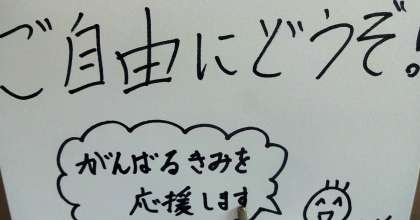 ご自由にどうぞ!
がんばるきみを
応援します